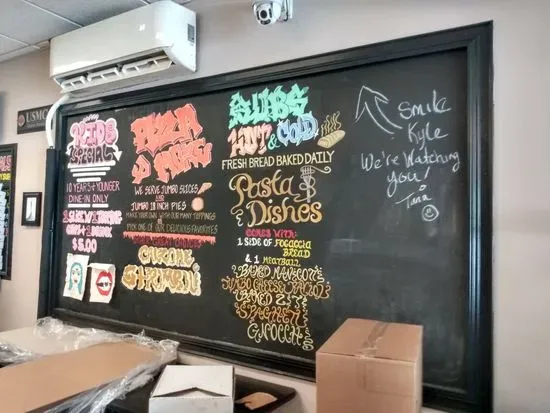 USMC
KIDS
SPECIAL
10 YEARS & YOUNGER
DINE-IN ONLY
1 SLICE W/ 1 TOPPING
$5.00
PIZZA
& MORE
WE SERVE JUMBO SLICES
AND
JUMBO 18 INCH PIES
MAKE YOUR OWN WITH OUR MANY TOPPINGS
PICK ONE OF OUR DELICIOUS FAVORITES
CALZONE
STROMBOLI
SUBS
HOT & COLD
FRESH BREAD BAKED DAILY
Pasta
Dishes
COMES WITH:
1 SIDE OF FOCACCIA
BREAD
& 1 MEATBALL
BAKED MANICOTTI
JUMBO CHEESE RAVIOLI
BAKED ZITI
SPAGHETTI
GNOCCHI
Smile
Kyle
We're Watching
you!
Tana